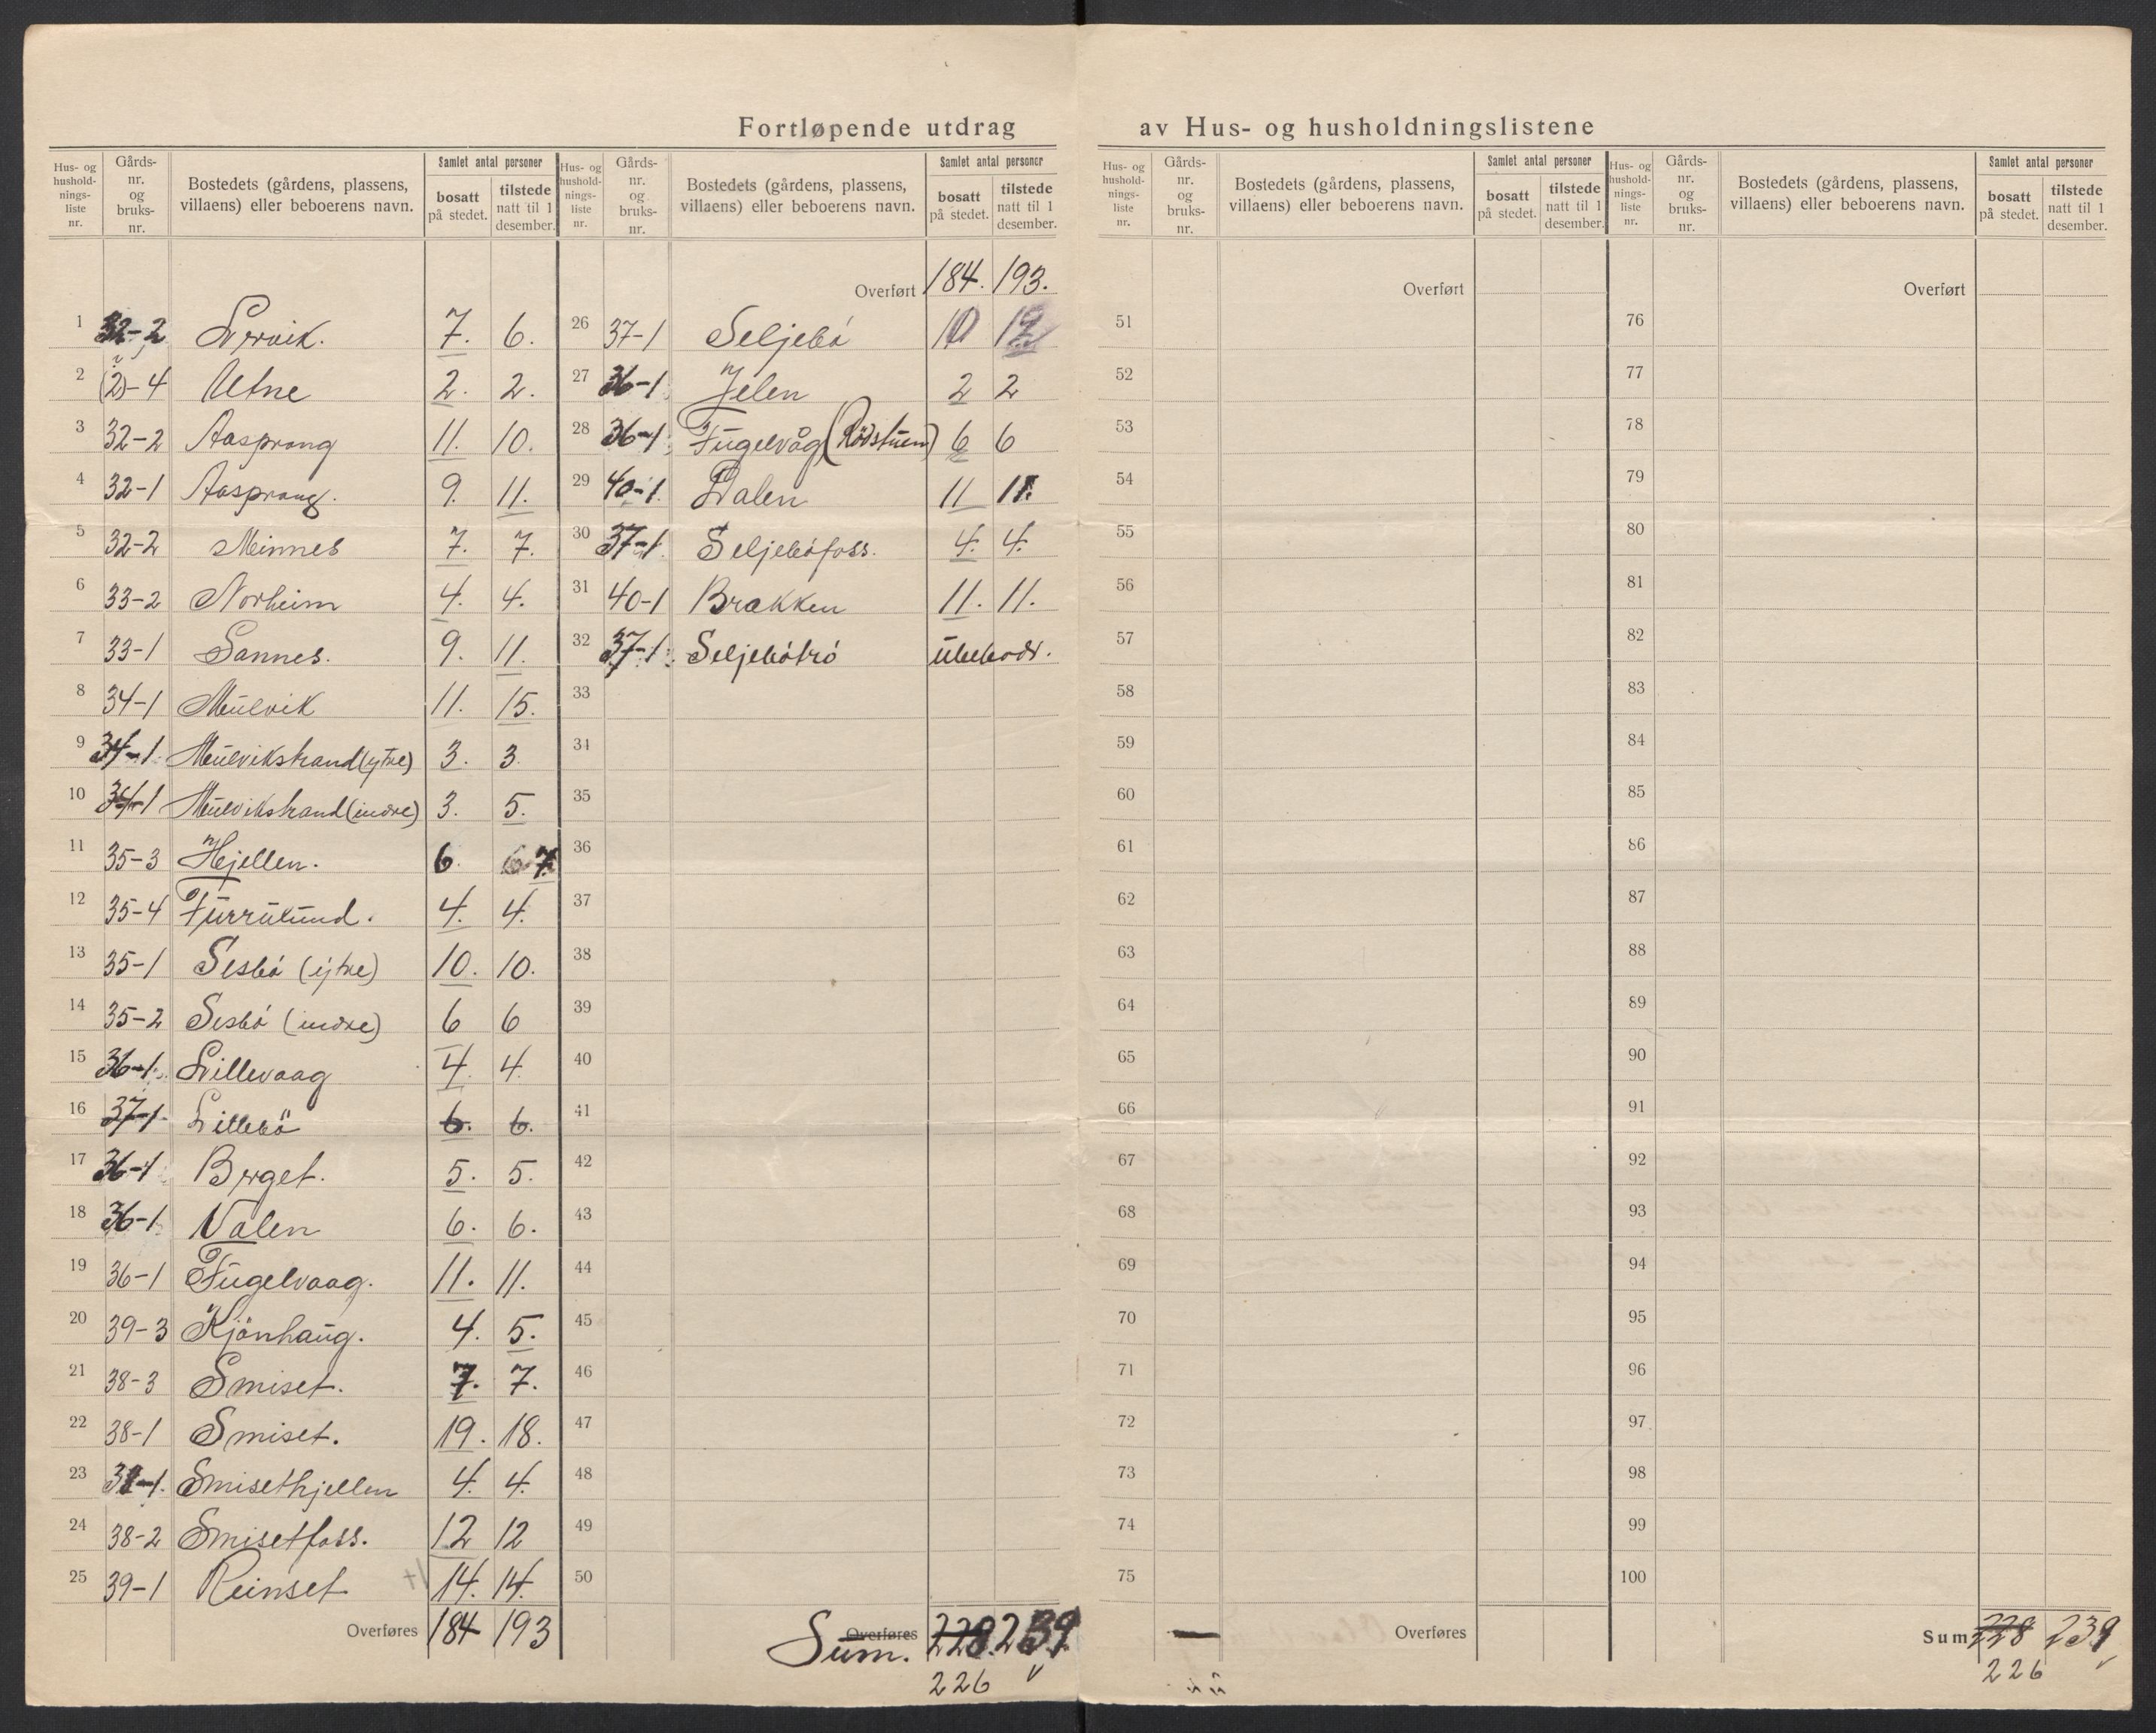 Fortløpende utdrag av Hus- og husholdningslistene
Hus- og hushold- nings- liste nr. | Gårds- nr. og bruks- nr. | Bostedets (gårdens, plassens, villaens) eller beboerens navn. | Samlet antal personer | bosatt på stedet. | tilstede natt til 1 desember.
1 32-2 Lervik. 7. 6.
2 (2)-4 Utne 2. 2.
3 32-2 Aasprong 11. 10.
4 32-1 Aasprong. 9. 11.
5 32-2 Minnes 7. 7.
6 33-2 Norheim 4. 4.
7 33-1 Sannes. 9. 11.
8 34-1 Mulvik 11. 15.
9 34-1 Mulvikstrand (ytre) 3. 3.
10 34-1 Mulvikstrand (indre) 3. 5.
11 35-3 Hjellen. 6. 6 7.
12 35-4 Furrulund. 4. 4.
13 35-1 Sesbó (ytre) 10. 10.
14 35-2 Sesbó (indre) 6 6
15 36-1 Lillevaag 4. 4.
16 37-1 Lillebö 6. 6.
17 36-1 Berget. 5. 5.
18 36-1 Valen 6. 6.
19 36-1 Fugelvaag. 11. 11.
20 39-3 Kjönhaug. 4. 5.
21 38-3 Smiset. 7. 7.
22 38-1 Smiset. 19. 18.
23 38-1. Smisethjellen 4. 4.
24 38-2 Smisetfoss. 12 12
25 39-1 Reinset 14. 14.
Overføres 184 193
Hus- og hushold- nings- liste nr. | Gårds- nr. og bruks- nr. | Bostedets (gårdens, plassens, villaens) eller beboerens navn. | Samlet antal personer | bosatt på stedet. | tilstede natt til 1 desember.
Overført 184. 193.
26 37-1 Seljebó 10 12
27 36-1 Jelen 2 2
28 36-1 Fugelvåg (Rödstuen) 6 6
29 40-1 Dalen 11 11.
30 37-1 Seljebófoss. 4. 4.
31 40-1 Brakken 11. 11.
32 37-1 Seljebótró ubebodt.
33
34
35
36
37
38
39
40
41
42
43
44
45
46
47
48
49
50
Overføres
Sum. 228. 239.
226
Hus- og hushold- nings- liste nr. | Gårds- nr. og bruks- nr. | Bostedets (gårdens, plassens, villaens) eller beboerens navn. | Samlet antal personer | bosatt på stedet. | tilstede natt til 1 desember.
Overført
51
52
53
54
55
56
57
58
59
60
61
62
63
64
65
66
67
68
69
70
71
72
73
74
75
Overføres
Hus- og hushold- nings- liste nr. | Gårds- nr. og bruks- nr. | Bostedets (gårdens, plassens, villaens) eller beboerens navn. | Samlet antal personer | bosatt på stedet. | tilstede natt til 1 desember.
Overført
76
77
78
79
80
81
82
83
84
85
86
87
88
89
90
91
92
93
94
95
96
97
98
99
100
Sum 228 239
226